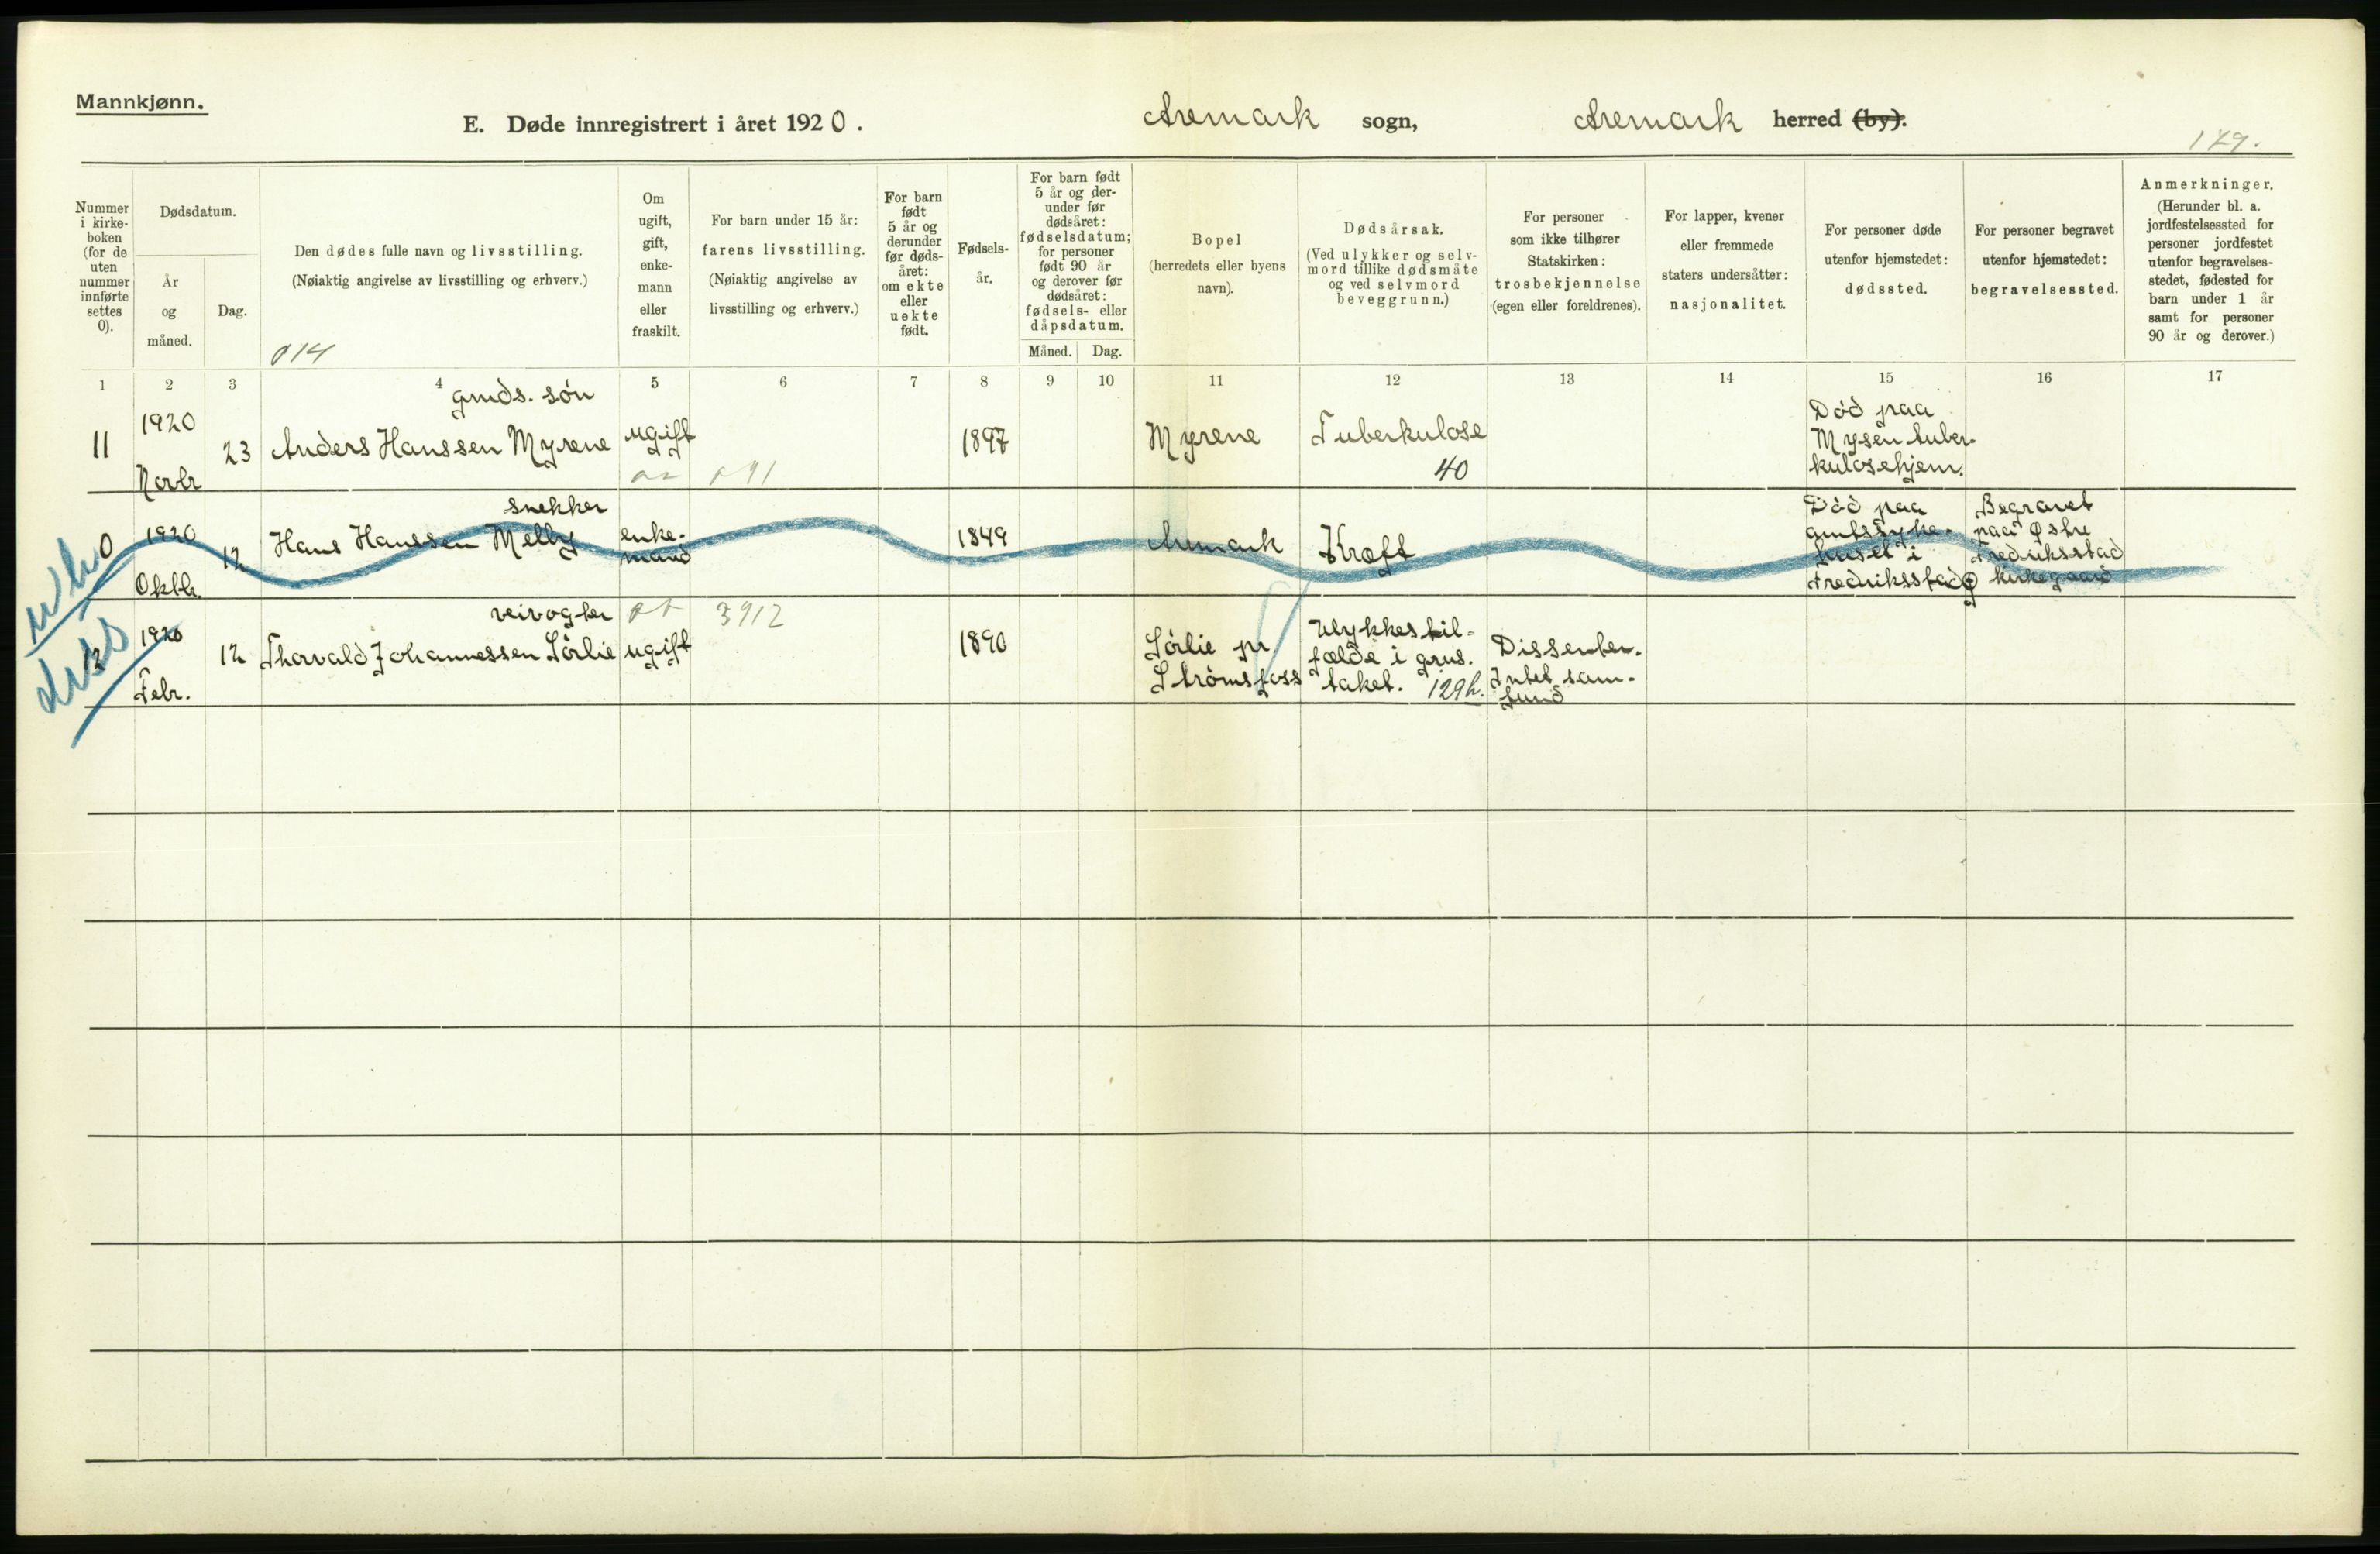 Mannkjønn.
E. Døde innregistrert i året 1920. Aremark sogn, Aremark herred (by).
179.
Nummer i kirkeboken (for de uten nummer innførte settes 0).
Dødsdatum.
År og måned.
Dag.
Den dødes fulle navn og livsstilling.
(Nøiaktig angivelse av livsstilling og erhverv.)
014
Om ugift, gift, enkemann eller fraskilt.
For barn under 15 år:
farens livsstilling.
(Nøiaktig angivelse av livsstilling og erhverv.)
For barn født 5 år og derunder før dødsåret: om ekte eller uekte født.
Fødselsår.
For barn født 5 år og derunder før dødsåret: fødselsdatum; for personer født 90 år og derover før dødsåret: fødsels- eller dåpsdatum.
Måned. Dag.
Bopel
(herredets eller byens navn).
Dødsårsak.
(Ved ulykker og selvmord tillike dødsmåte og ved selvmord beveggrunn.)
For personer som ikke tilhører Statskirken:
trosbekjennelse
(egen eller foreldrenes).
For lapper, kvener eller fremmede staters undersåtter:
nasjonalitet.
For personer døde utenfor hjemstedet:
dødssted.
For personer begravet utenfor hjemstedet:
begravelsessted.
Anmerkninger.
(Herunder bl. a. jordfestelsessted for personer jordfestet utenfor begravelsesstedet, fødested for barn under 1 år samt for personer 90 år og derover.)
1 2 3 4 5 6 7 8 9 10 11 12 13 14 15 16 17
11
1920
Novbr
23
gmds. søn
Anders Hanssen Myrene
ugift
091
1897
Myrene
Tuberkulose
40
Død paa
Mysen tuber-
kulosehjem.
0
1920
Oktbr.
12
snekker
Hans Hanssen Melby
enke-
mand
1849
Aremark
Kræft
Død paa
amtssyke-
huset i
Fredriksstad
Begravet
paa Østre
Fredriksstad
kirkegaard
diss
12
1920
Febr.
12
veivogter
Thorvald Johannessen Sørlie
ugift
3912
1890
Sørlie pr.
Strømsfoss
Ulykkestil-
fælde i grus-
taket. 129b.
Dissenter.
Intet sam-
fund